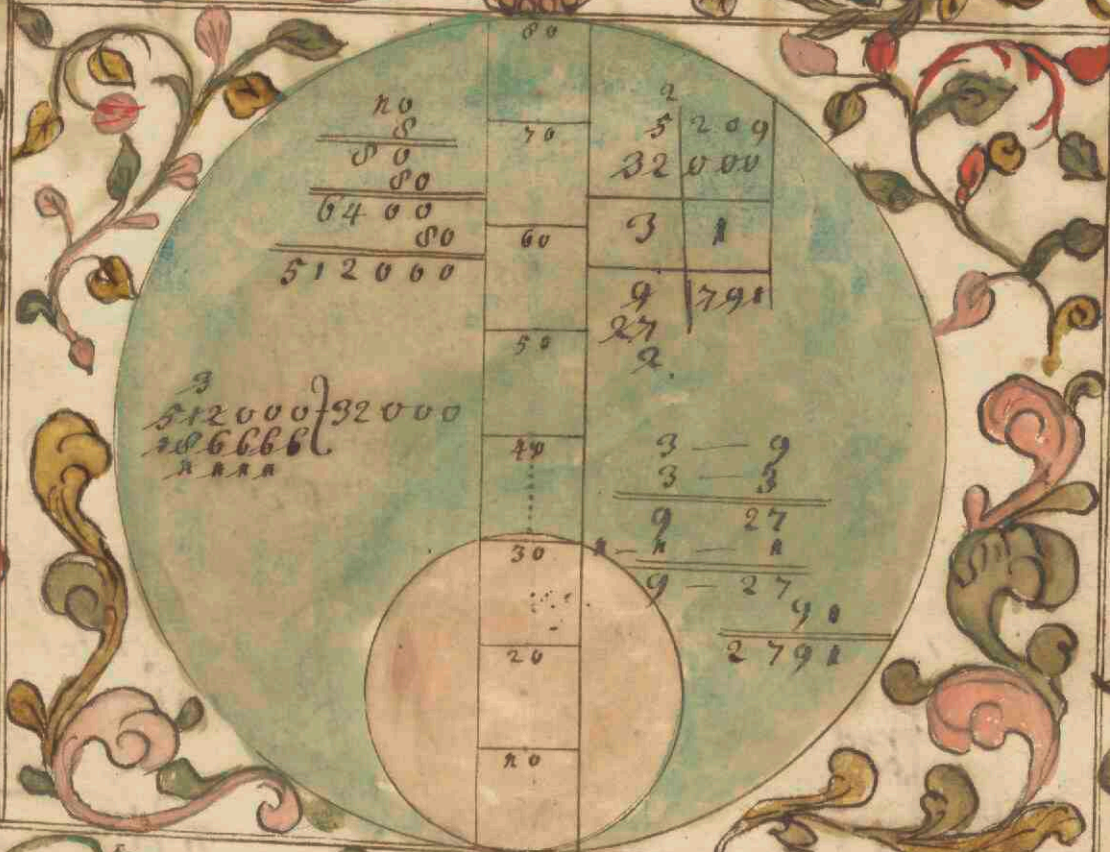 80
70
60
50
40
30
20
10
10
8
80
80
6400
80
512000
3
512000 } 32000
186666
1111
2
5 | 209
32 | 000
3 | 1
9 | 791
27
2.
3 — 9
3 — 3
9 27
1 — 1 — 1
9 — 27
91
2791